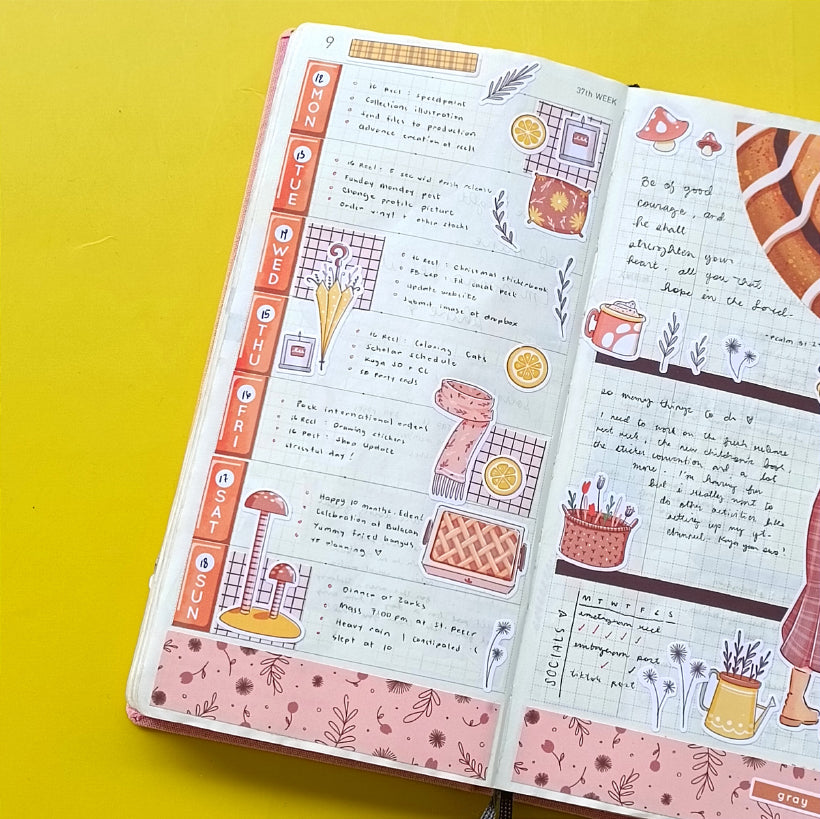 9
37th WEEK
12
MON
IG Reel : Speedpaint
Collections illustration
Send files to production
Advance creation of reels
13
TUE
IG Reel : 5 sec vid fresh release
Funday Monday post
Change profile picture
Order vinyl + other stocks
14
WED
IG Reel : Christmas stickerbook
FB : Fil
Update website
Submit image at dropbox
15
THU
IG Reel : Coloring Cats
Scholar schedule
Kuya JD + CL
SB Party ends
16
FRI
Pack international orders
IG Reel : Drawing stickers
IG Post : Shop Update
stressful day!
17
SAT
Happy 10 months Eden!
Celebration at Bulacan
Yummy fried bangus
YT planning
18
SUN
Dinner at Zarks
Mass 7:00 pm at St. Peter
Heavy rain | Constipated :(
Slept at 10
Be of good
courage, and
He shall
strengthen your
heart, all you that
hope in the Lord.
- Psalm 31:2
so many things to do
I need to work on the fresh release
next week, the new children's book,
the sticker convention and a lot
more. I'm having fun
but I really want to
do other activities like
setting up my yt
channel. Kaya yan ows!
SOCIALS
M T W T F S S
instagram reel
instagram post
tiktok post
gray